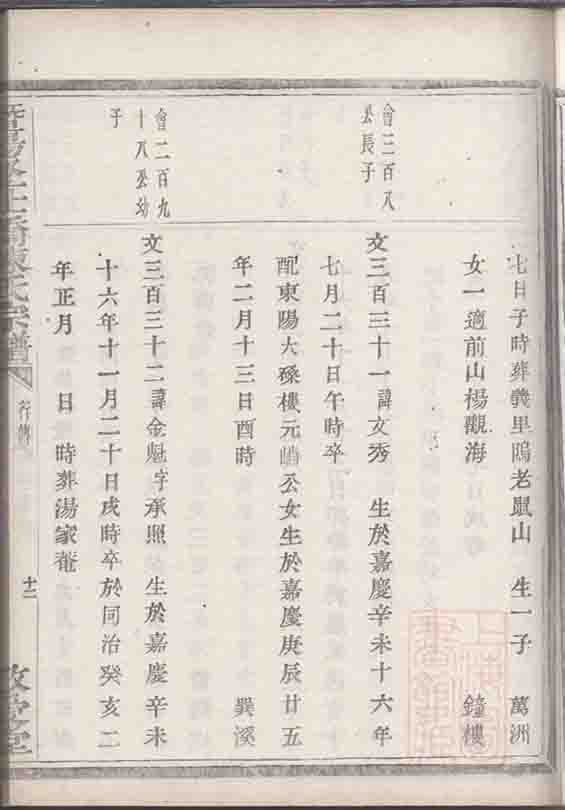 七日子時葬義里隖老鼠山 生一子 萬洲
女一適前山楊觀海 鐘樓
會三百八
公長子
文三百三十一諱文秀 生於嘉慶辛未十六年
七月二十日午時卒
配東陽大磉樓元嵴公女生於嘉慶庚辰廿五
年二月十三日酉時 巽溪
會二百九
十八公幼
子
文三百三十二諱金魁字承照 生於嘉慶辛未
十六年十一月二十日戌時卒於同治癸亥二
年正月 日 時葬湯家菴
宗譜
行傳
十二